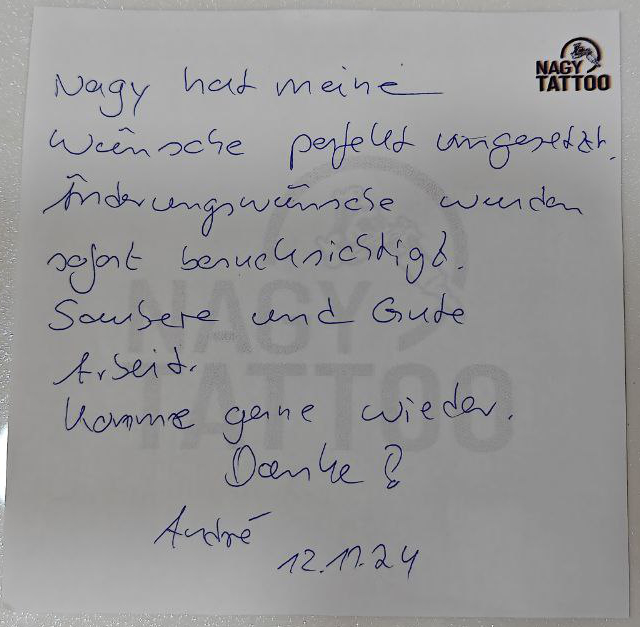 NAGY
TATTOO
Nagy hat meine
Wünsche perfekt umgesetzt.
Änderungswünsche wurden
sofort berucksichtigt.
Saubere und Gute
Arbeit.
Komme gerne wieder.
Danke!
André
12.11.24
NAGY
TATTOO